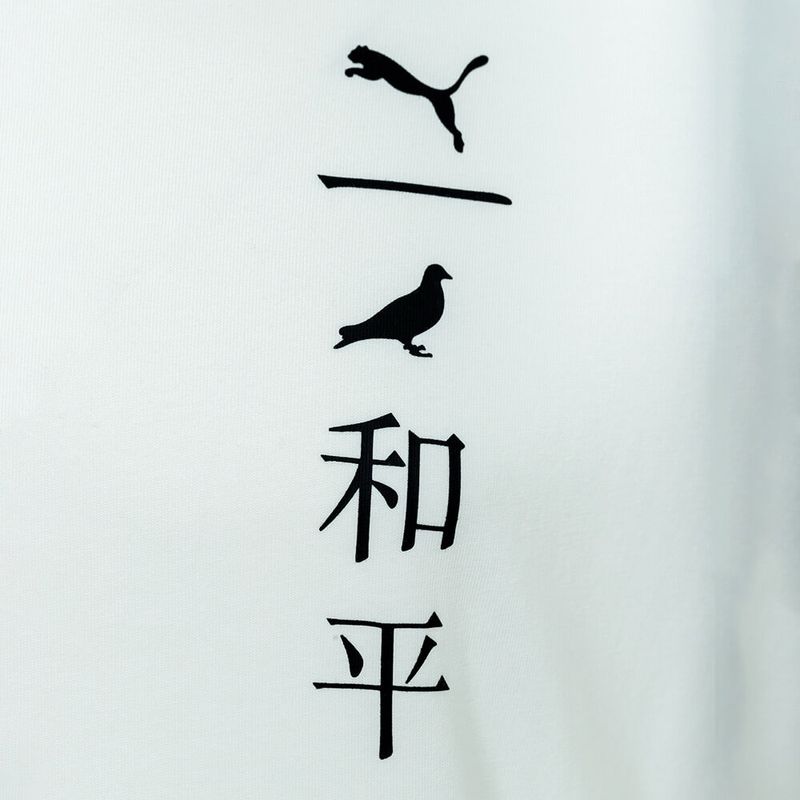 一
和平